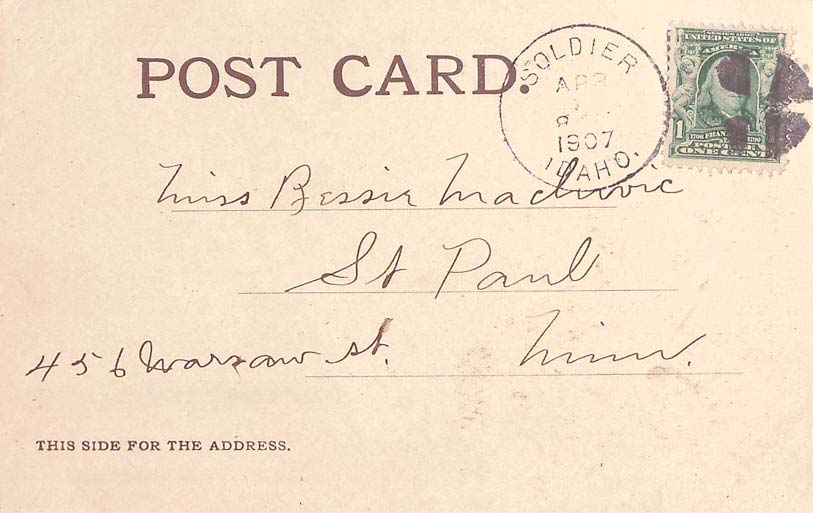 POST CARD.
SOLDIER
APR
1907
IDAHO.
SERIES 1902
UNITED STATES OF
AMERICA
1706 FRANKLIN 1790
POSTAGE
1 ONE CENT
Miss Bessie
St Paul
456 Warsaw st. Minn.
THIS SIDE FOR THE ADDRESS.